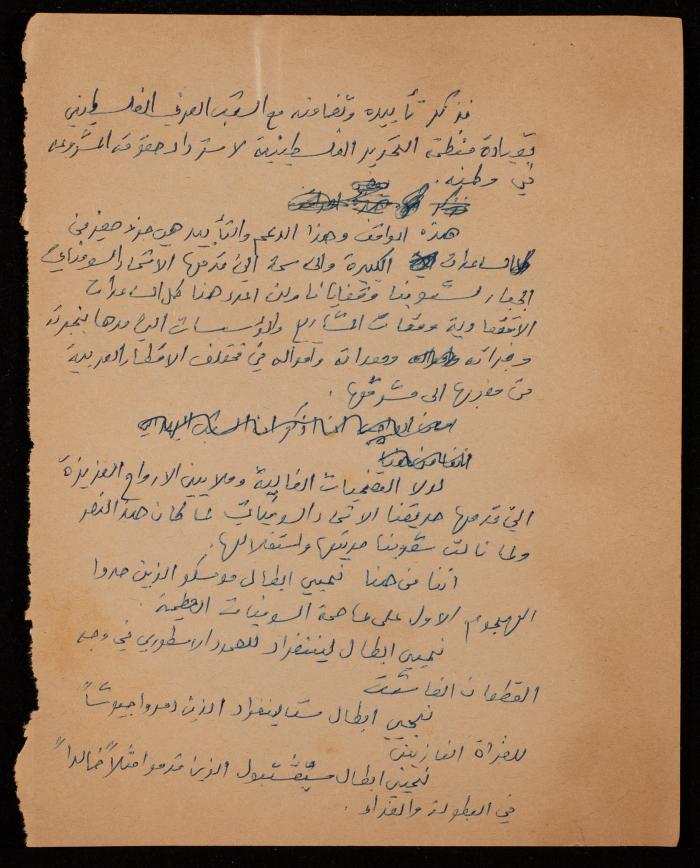 فذكر تأييده وتضامنه مع الشعب العربي الفلسطيني
بقيادة منظمة التحرير الفلسطينية لاسترداد حقوقه المشروعة
في وطنه.
هذه المواقف وهذا الدعم والتأييد هي جزء صغير من
المساعدات الكبيرة والى سمة التي قدمها الاتحاد السوفياتي
الجبار لشعوبنا وقضايانا ولن اعدد هنا كل المساعدات
الاقتصادية ومئات المشاريع والمؤسسات التي مدها بخبرته
وخبرائه ومعداته وامواله في مختلف الاقطار العربية
من مغربها الى مشرقها.
لولا التضحيات الغالية وملايين الارواح العزيزة
التي قدمها صديقنا الاتحاد السوفياتي لما كان هذا النصر
ولما نالت شعوبنا حريتها واستقلالها.
اننا من هنا نحيي ابطال موسكو الذين صدوا
الهجوم الاول على عاصمة السوفيات العظيمة.
نحيي ابطال ليننغراد للصمود الاسطوري في وجه
القطعان الفاشية
نحيي ابطال ستالينغراد الذين دمروا جيوشاً
للغزاة النازيين
نحيي ابطال سيفستبول الذين قدموا مثلاً خالداً
في البطولة والفداء.